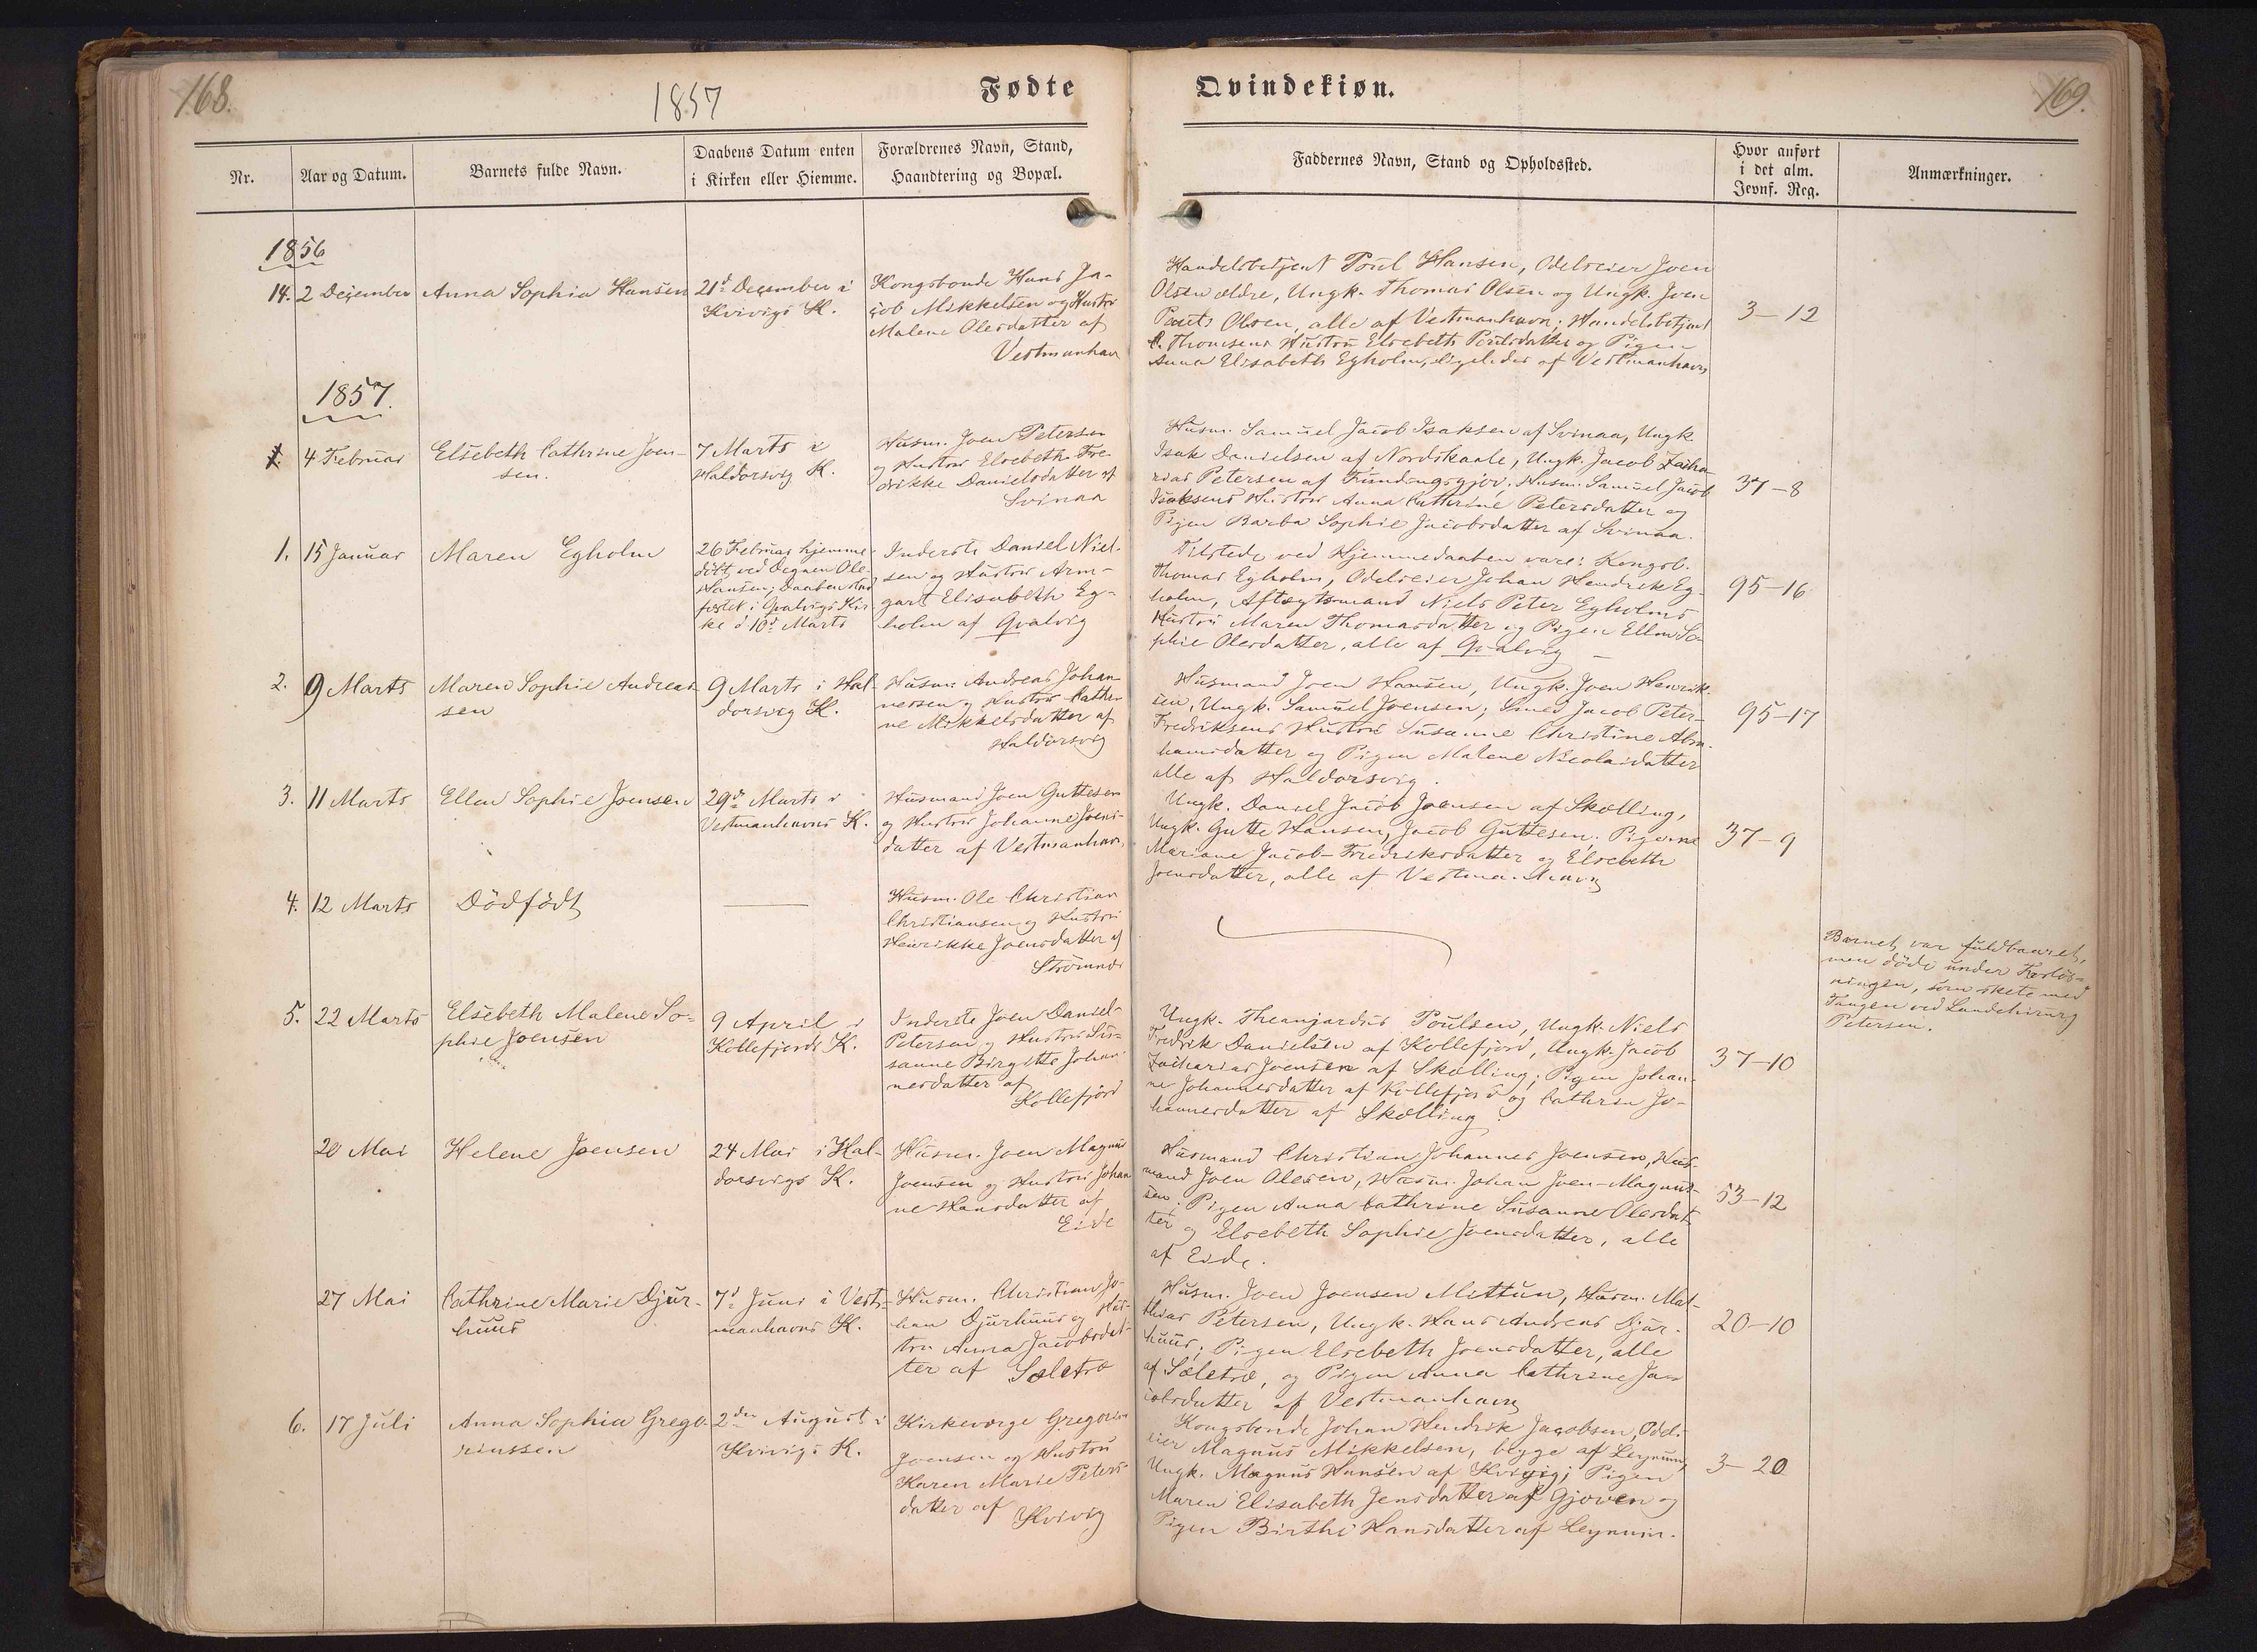 168.
1857
Fødte
Qvindekiøn.
169.
Nr.
Aar og Datum.
Barnets fulde Navn.
Daabens Datum enten
i Kirken eller Hiemme.
Forældrenes Navn, Stand,
Haandtering og Bopæl.
Faddernes Navn, Stand og Opholdssted.
Hvor anført
i det alm.
Jevnf. Reg.
Anmærkninger.
1856
14.
2 December
Anna Sophia Hansen
21d December i
Kvivigs K.
Kongsbonde Hans Ja-
cob Mikkelsen og Hustru
Malene Olesdatter af
Vestmanhavn
Handelsbetjent Poul Hansen, Odelseier Joen
Olsen ældre, Ungk. Thomas Olsen og Ungk. Joen
Pauts Olsen, alle af Vestmanhavn; Handelsbetjent
Thomsens Hustru Elsebeth Poulsdatter og Pigen
Anna Elisabeth Egholm, ligeledes af Vestmanhavn
3-12
1857.
1.
4 Februar
Elsebeth Cathrine Joen-
sen.
7 Marts i
Haldorsvig K.
Husm. Joen Petersen
og Hustru Elsebeth Fre-
drikke Danielsdatter af
Svinaa
Husm. Samuel Jacob Isaksen af Svinaa, Ungk.
Isak Danielsen af Nordskaale, Ungk. Jacob Zacha-
rias Petersen af Fundingsgjov. Husm. Samuel Jacob
Isaksens Hustru Anna Cathrine Petersdatter og
Pigen Barba Sophie Jacobsdatter af Svinaa.
37-8
1.
15 Januar
Maren Egholm
26 Februar hjemme-
döbt ved Degnen Ole
Hansen; Daaben stad-
fæstet i Qvalvigs Kir-
ke d. 10d Marts
Inderste Daniel Niel-
sen og Hustru Arm-
gart Elisabeth Eg-
holm af Qvalvig
Tilstede ved Hjemmedaaben vare: Kongsb.
Thomas Egholm, Odelseier Johan Hendrik Eg-
holm, Aftægtsmand Niels Peter Egholms
Hustru Maren Thomasdatter og Pigen Ellen So-
phie Olesdatter, alle af Qvalvig
95-16
2.
9 Marts
Maren Sophie Andreas-
sen
9 Marts i Hal-
dorsvig K.
Husm. Andreas Johan-
nessen og Hustru Cathri-
ne Mikkelsdatter af
Haldorsvig
Husmand Joen Hansen, Ungk. Joen Henrik-
sen, Ungk. Samuel Joensen; Smed Jacob Peter-
Fredriksens Hustru Susanne Christine Abra-
hamsdatter og Pigen Malene Nicolaidatter
alle af Haldorsvig.
95-17
3.
11 Marts
Ellen Sophie Joensen
29d Marts i
Vestmanhavns K.
Husmand Joen Guttesen
og Hustru Johanne Joens-
datter af Vestmanhavn
Ungk. Daniel Jacob Joensen af Skælling,
Ungk. Gutte Hansen, Jacob Guttesen; Pigerne
Mariane Jacob-Fredriksdatter og Elsebeth
Joensdatter, alle af Vestmanhavn
37-9
4.
12 Marts
Dödfödt
Husm. Ole Christian
Christiansen og Hustru
Henrikke Joensdatter af
Strömnæs
Barnet var fuldbaaret,
men döde under Forlös-
ningen, som skete med
Tangen ved Landchirurg
Petersen.
5.
22 Marts
Elsebeth Malene So-
phie Joensen
9 April i
Kollefjords K.
Inderste Joen Daniel-
Petersen og Hustru Su-
sanne Birgitte Johan-
nesdatter af
Kollefjord
Ungk. Poulsen, Ungk. Niels
Fredrik Danielsen af Kollefjord, Ungk. Jacob
Zacharias Joensen af Skælling; Pigen Johan-
ne Johannesdatter af Kollefjord og Cathrine Jo-
hannesdatter af Skælling.
37-10
20 Mai
Helene Joensen
24 Mai i Hal-
dorsvigs K.
Husm. Joen Magnus
Joensen og Hustru Johan-
ne Hansdatter af
Eide
Husmand Christian Johannes Joensen, Hus-
mand Joen Olesen, Husm. Johan Joen-Magnus-
sen; Pigen Anna Cathrine Susanne Olesdat-
ter og Elsebeth Sophie Joensdatter, alle
af Eide.
53-12
27 Mai
Cathrine Marie Djur-
huus
7d Juni i Vest-
manhavns K.
Husm. Christian Jo-
han Djurhuus og Hus-
tru Anna Jacobsdat-
ter af Sæletræ
Husm. Joen Joensen Mittun, Husm. Mat-
thias Petersen, Ungk. Hans Andreas Djur-
huus; Pigen Elsebeth Joensdatter, alle
af Sæletræ, og Pigen Anna Cathrine Ja-
cobsdatter af Vestmanhavn
20-10
6.
17 Juli
Anna Sophia Grego-
riussen
2den August i
Kvivigs K.
Kirkeværge Gregorius
Joensen og Hustru
Karen Marie Peters-
datter af Kvivig
Kongsbonde Johan Hendrik Jacobsen, Odels-
eier Magnus Mikkelsen, begge af Leynum,
Ungk. Magnus Hansen af Kvivig; Pigen
Maren Elisabeth Jensdatter af Gjoven og
Pigen Birthe Hansdatter af Leynum.
3-20